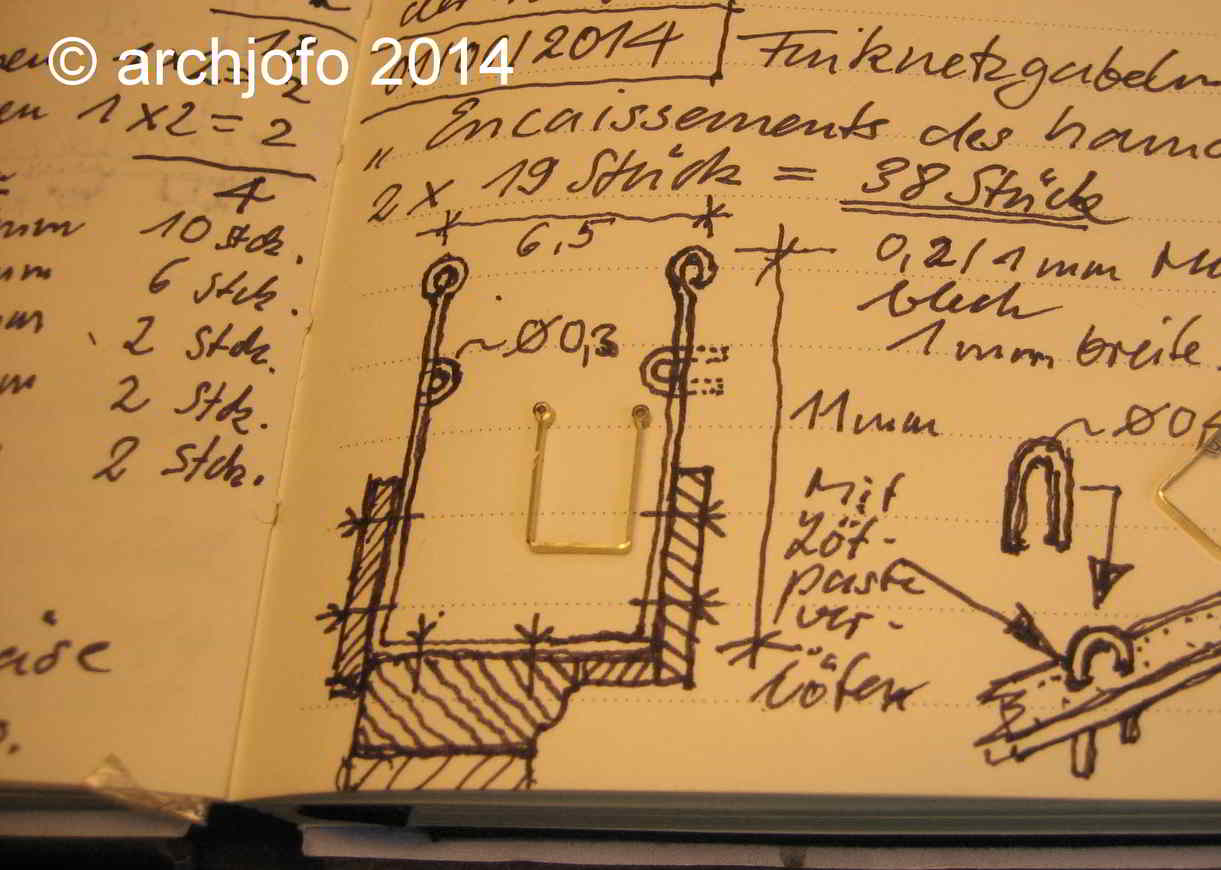 © archjofo 2014
1 x 2 = 2
4
10 Stck.
6 Stck.
2 Stck.
2 Stck.
2 Stck.
/2014
Finknetzgabeln
„Encaissements des hamac
2 x 19 Stück = 38 Stück
6,5
0,2/1 mm
blech
1 mm breite
~Ø0,3
11 mm
~Ø0,
Mit
Löt-
paste
ver-
löten